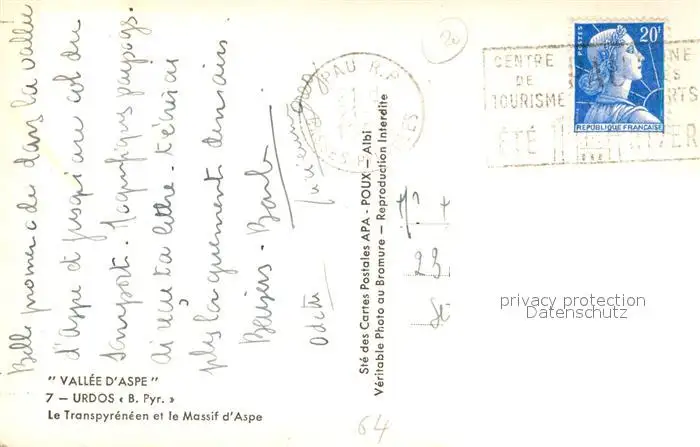 Belle promenade dans la vallée
d'Aspe et jusqu'au col du
Somport. Magnifiques paysages.
ai reçu ta lettre. t'écrirai
plus longuement demain
Baisers.
Odette
" VALLÉE D'ASPE "
7 — URDOS « B. Pyr. »
Le Transpyrénéen et le Massif d'Aspe
Sté des Cartes Postales APA - POUX — Albi
Véritable Photo au Bromure — Reproduction Interdite
20
PAU R.P.
CENTRE
DE
TOURISME
ÉTÉ
POSTES
20F
RÉPUBLIQUE FRANÇAISE
23
privacy protection
Datenschutz
64